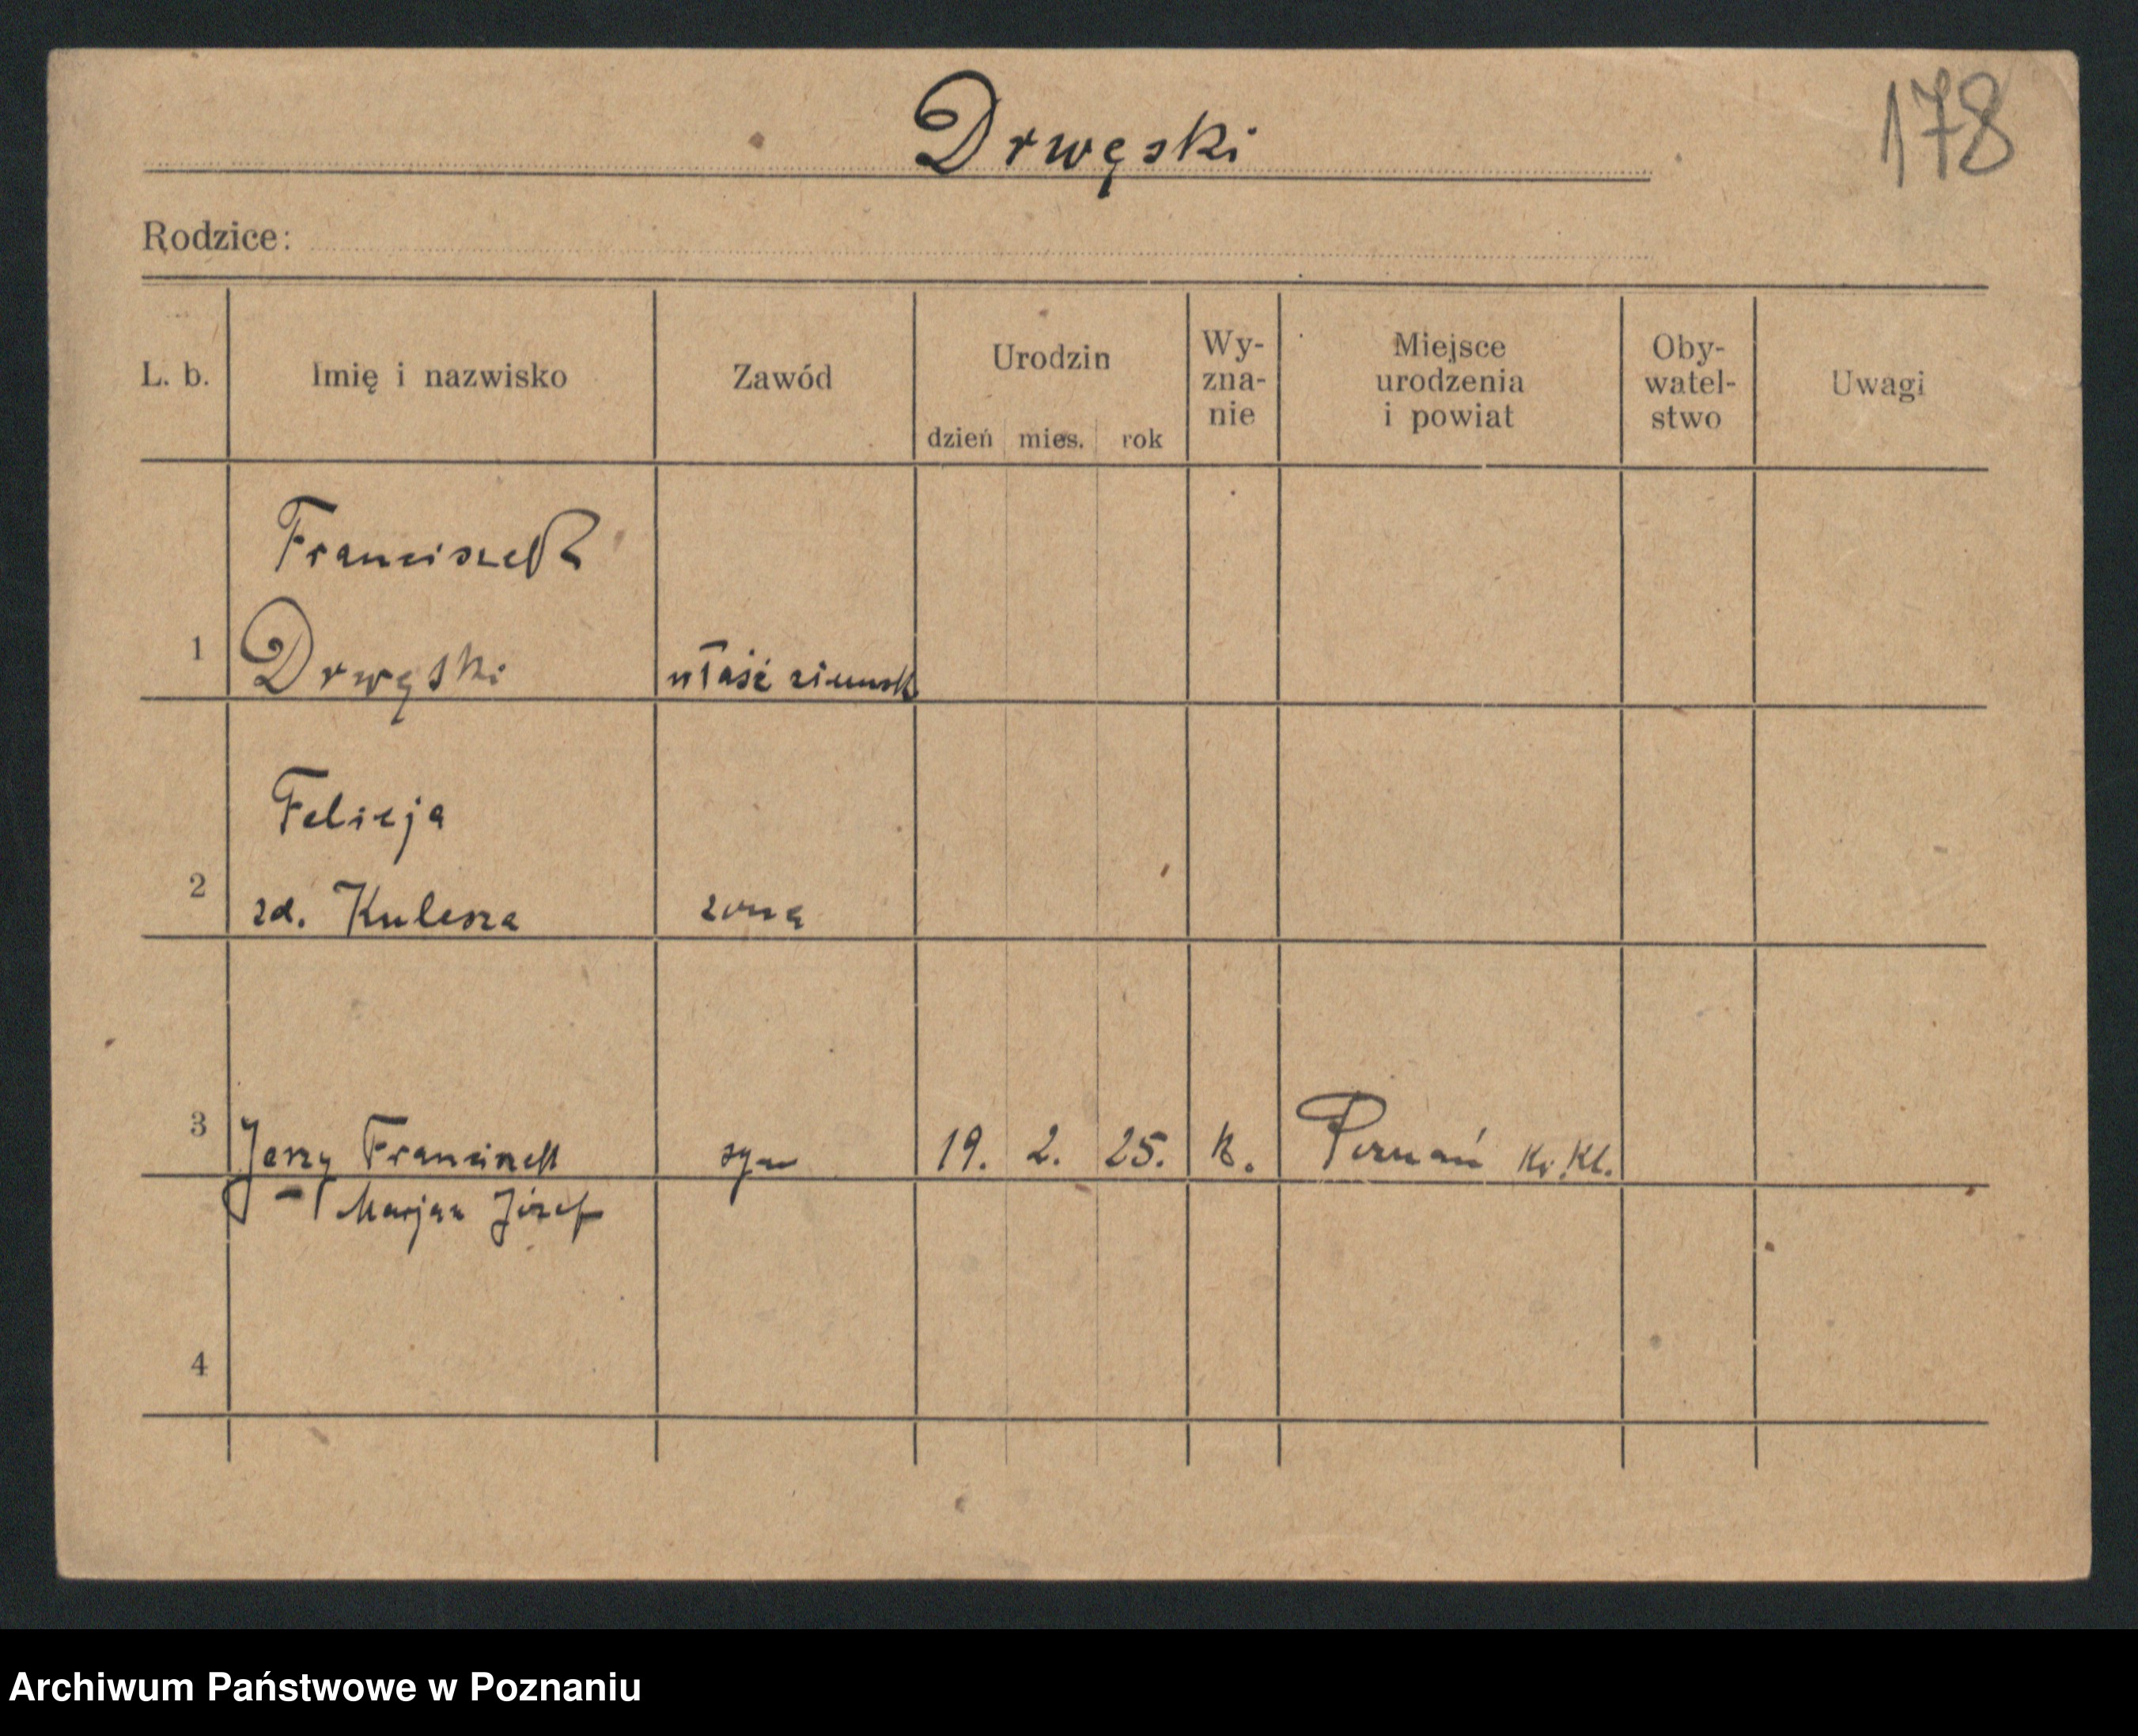 Drwęski
178
Rodzice:
L. b.
Imię i nazwisko
Zawód
Urodzin
dzień mies. rok
Wy-
zna-
nie
Miejsce
urodzenia
i powiat
Oby-
watel-
stwo
Uwagi
Franciszek
1 Drwęski właść ziemsk
Felicja
2 zd. Kulesza żona
3 Jerzy Franciszek syn 19. 2. 25. k. Poznań Kr. Kl.
Marjan Józef
4
Archiwum Państwowe w Poznaniu